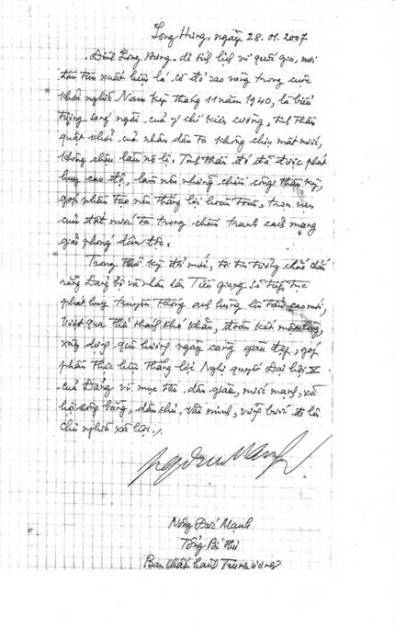 Long Hưng, ngày 28.01.2007
Đình Long Hưng - di tích lịch sử quốc gia, nơi
đầu tiên xuất hiện lá cờ đỏ sao vàng trong cuộc
khởi nghĩa Nam Kỳ tháng 11 năm 1940, là biểu
tượng sáng ngời của ý chí kiên cường, tinh thần
quật khởi của nhân dân ta không chịu mất nước,
không chịu làm nô lệ. Tinh thần đó đã được phát
huy cao độ, làm nên những chiến công thần kỳ,
góp phần tạo nên thắng lợi hoàn toàn, trọn vẹn
của đất nước ta trong chiến tranh cách mạng
giải phóng dân tộc.
Trong thời kỳ đổi mới, tôi tin tưởng chắc chắn
rằng Đảng bộ và nhân dân Tiền Giang sẽ tiếp tục
phát huy truyền thống anh hùng lên tầm cao mới,
vượt qua thử thách khó khăn, đoàn kết một lòng,
xây dựng quê hương ngày càng giàu đẹp, góp
phần thực hiện thắng lợi Nghị quyết Đại hội X
của Đảng vì mục tiêu dân giàu, nước mạnh, xã
hội công bằng, dân chủ, văn minh, vững bước đi lên
chủ nghĩa xã hội./.
Nông Đức Mạnh
Tổng Bí thư
Ban Chấp hành Trung ương